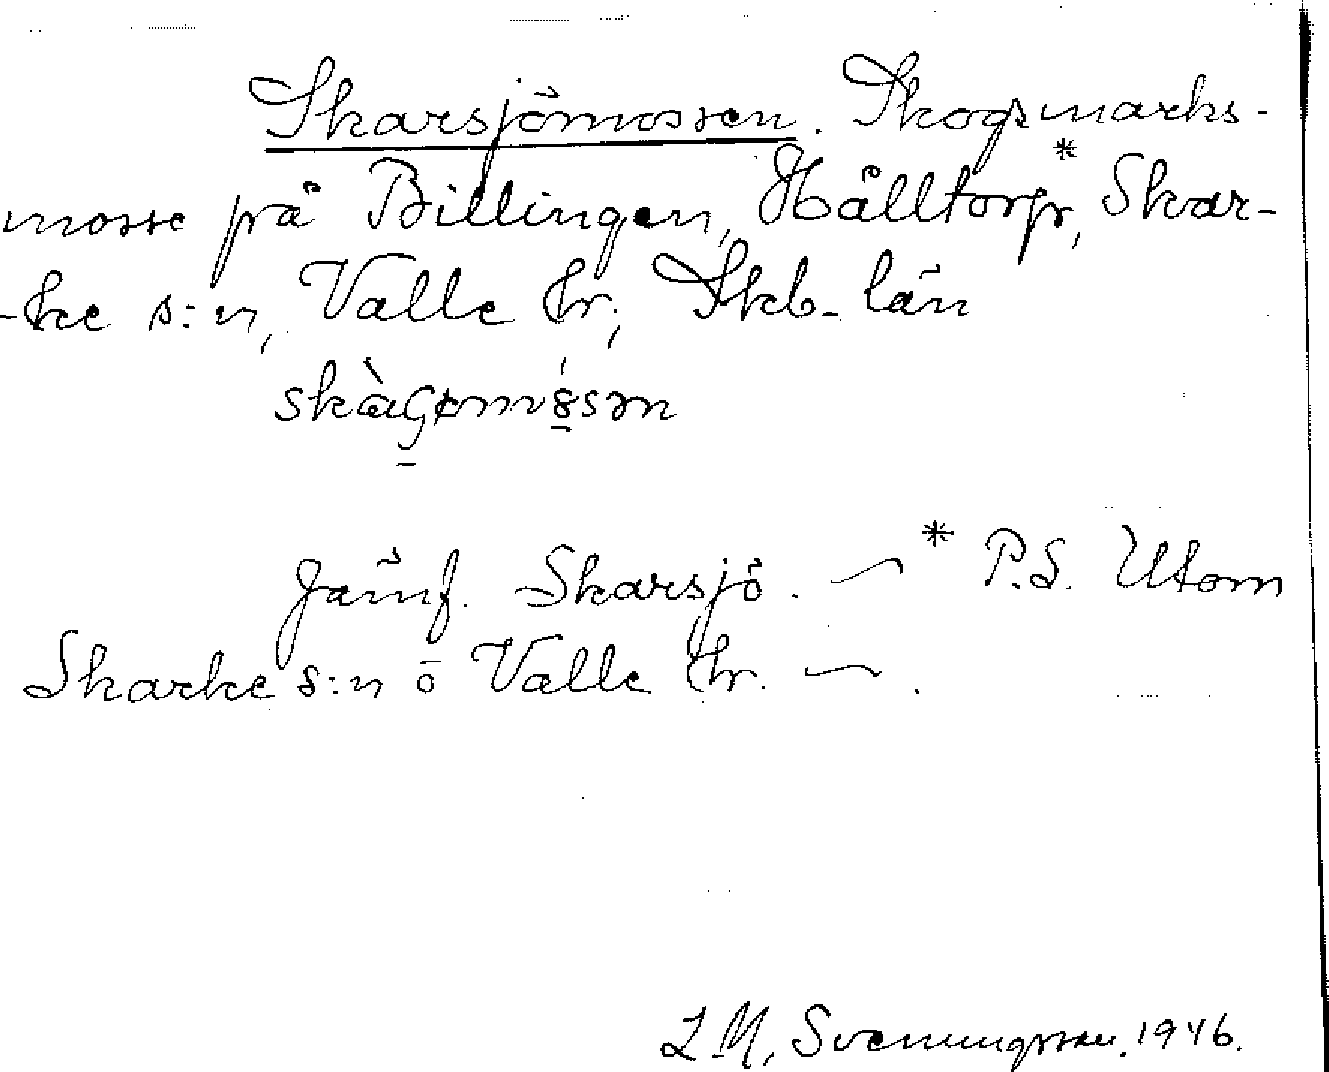 Skarsjömossen. Skogsmarks-
mosse på Billingen, Hälltorp*, Skar-
-ke s:n, Valle hr, Skb. län
Jämf. Skarsjö. — * P.S. Utom
Skarke s:n ō Valle hr. — .
L M, Svenungsson. 1946.